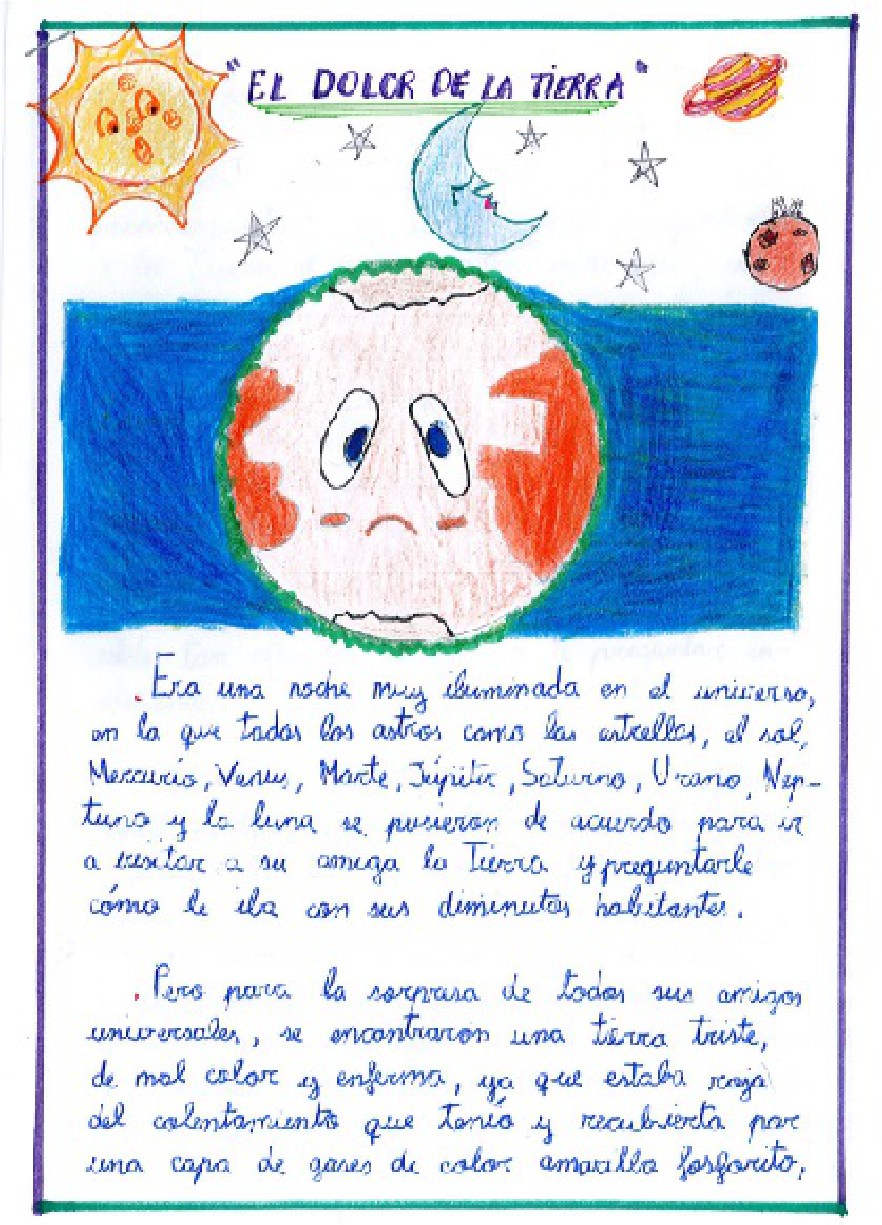 "EL DOLOR DE LA TIERRA"
Era una noche muy iluminada en el universo,
en la que todos los astros como las estrellas, el sol,
Mercurio, Venus, Marte, Júpiter, Saturno, Urano, Nep-
tuno y la luna se pusieron de acuerdo para ir
a visitar a su amiga la Tierra y preguntarle
cómo le iba con sus diminutos habitantes.
Pero para la sorpresa de todos sus amigos
universales, se encontraron una tierra triste,
de mal color y enferma, ya que estaba roja
del calentamiento que tenía y recubierta por
una capa de gases de color amarillo fosforito,